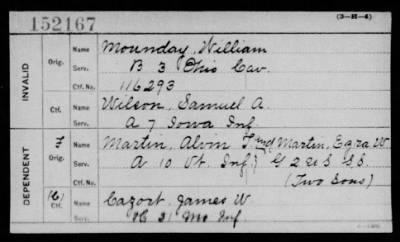 152167
(3-H-4)
INVALID
Orig. Name Mounday, William
Serv. B 3 Ohio Cav.
Ctf. No. 116293
Ctf. Name Wilson, Samuel A.
Serv. A 7 Iowa Inf
DEPENDENT
Orig. Name Martin, Alvin and Martin, Ezra W.
Serv. A 10 Vt. Inf } G 2 U.S. S.S.
Ctf. No. (Two Sons)
Ctf. Name Cazort, James W.
Serv. 31 Mo Inf